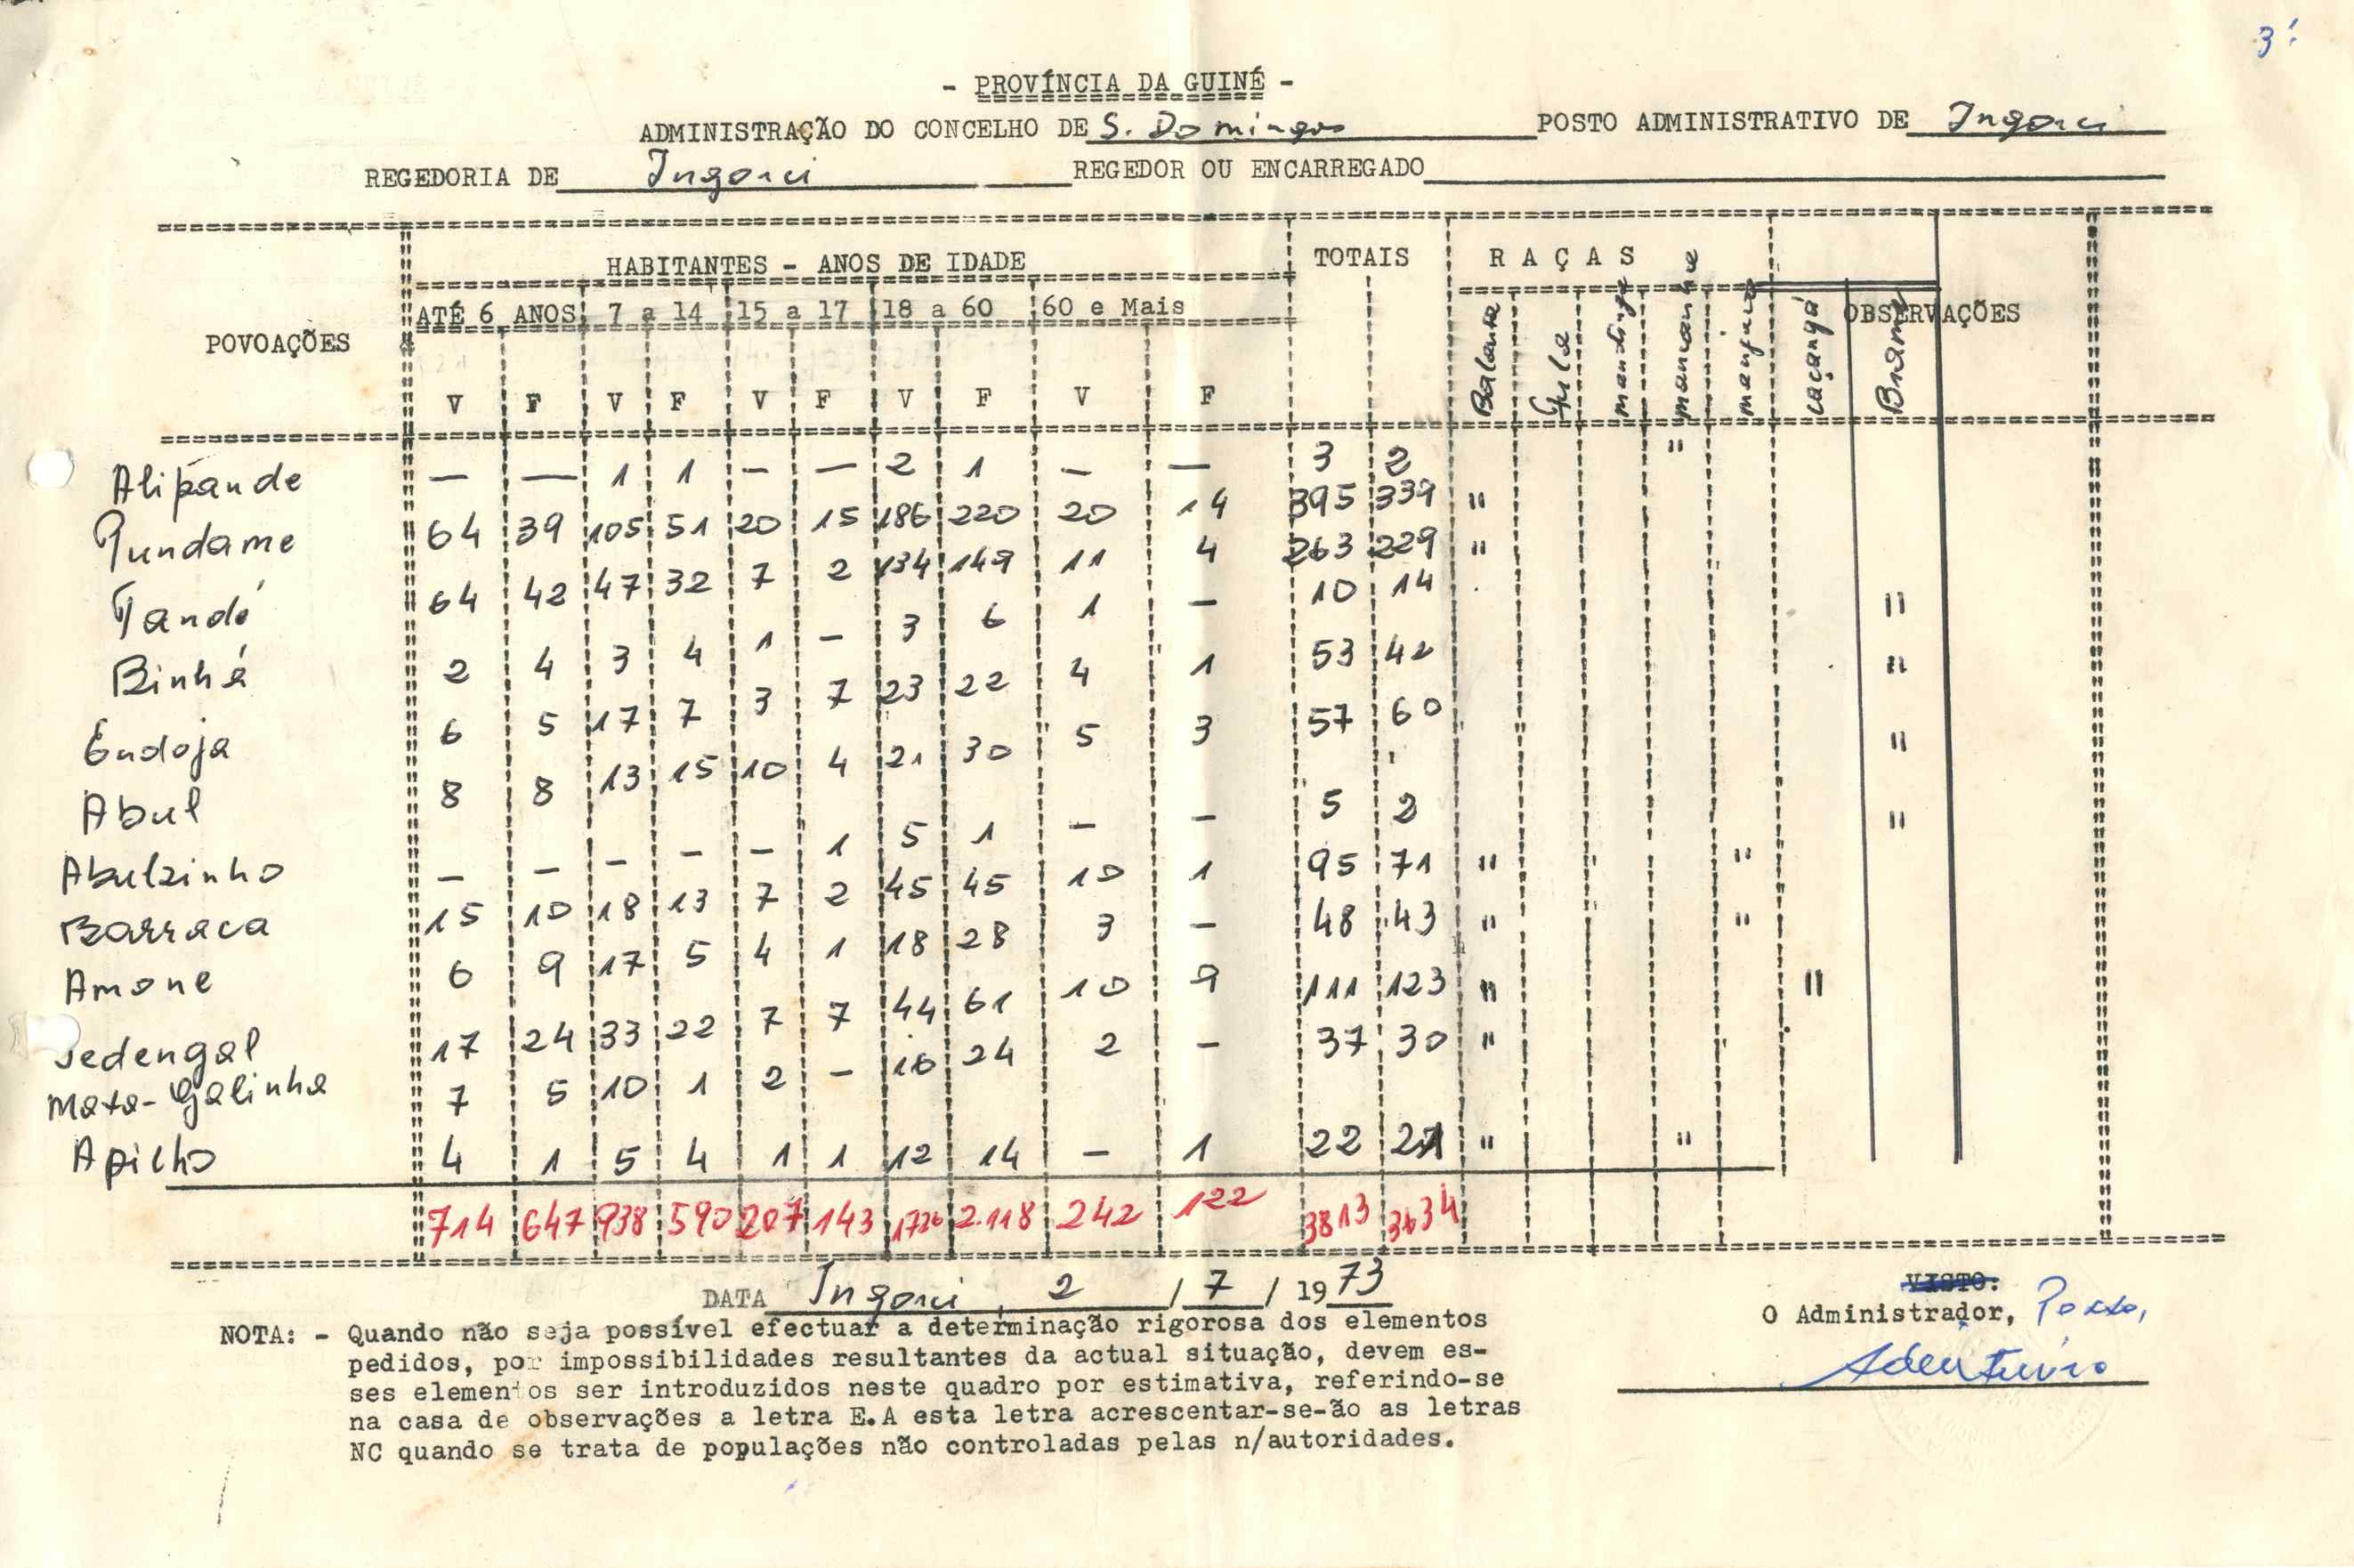 3ª
- PROVÍNCIA DA GUINÉ -
ADMINISTRAÇÃO DO CONCELHO DE S. Domingos POSTO ADMINISTRATIVO DE Ingorei
REGEDORIA DE Ingorei REGEDOR OU ENCARREGADO
POVOAÇÕES HABITANTES - ANOS DE IDADE TOTAIS RAÇAS OBSERVAÇÕES
ATÉ 6 ANOS 7 a 14 15 a 17 18 a 60 60 e Mais
Balanta Fula mandinga mancanha manjaco caçangá Brame
V F V F V F V F V F
Alipande — — 1 1 — — 2 1 — — 3 2 "
Gundame 64 39 105 51 20 15 186 220 20 14 395 339 "
Tandé 64 42 47 32 7 2 134 149 11 4 263 229 "
Binhá 2 4 3 4 1 — 3 6 1 — 10 14 "
Endoja 6 5 17 7 3 7 23 22 4 1 53 42 "
Abul 8 8 13 15 10 4 21 30 5 3 57 60 "
Abulzinho — — — — — 1 5 1 — — 5 2 "
Barraca 15 10 18 13 7 2 45 45 10 1 95 71 " "
Amone 6 9 17 5 4 1 18 28 3 — 48 43 " "
Jedengal 17 24 33 22 7 7 44 61 10 9 111 123 " "
Mata-Galinha 7 5 10 1 2 — 16 24 2 — 37 30 "
Apilho 4 1 5 4 1 1 12 14 — 1 22 21 " "
714 647 938 590 207 143 1726 2.118 242 122 3813 3634
DATA Ingorei, 2 / 7 / 1973
VISTO:
O Administrador, Posto,
NOTA: - Quando não seja possível efectuar a determinação rigorosa dos elementos
pedidos, por impossibilidades resultantes da actual situação, devem es-
ses elementos ser introduzidos neste quadro por estimativa, referindo-se
na casa de observações a letra E.A esta letra acrescentar-se-ão as letras
NC quando se trata de populações não controladas pelas n/autoridades.